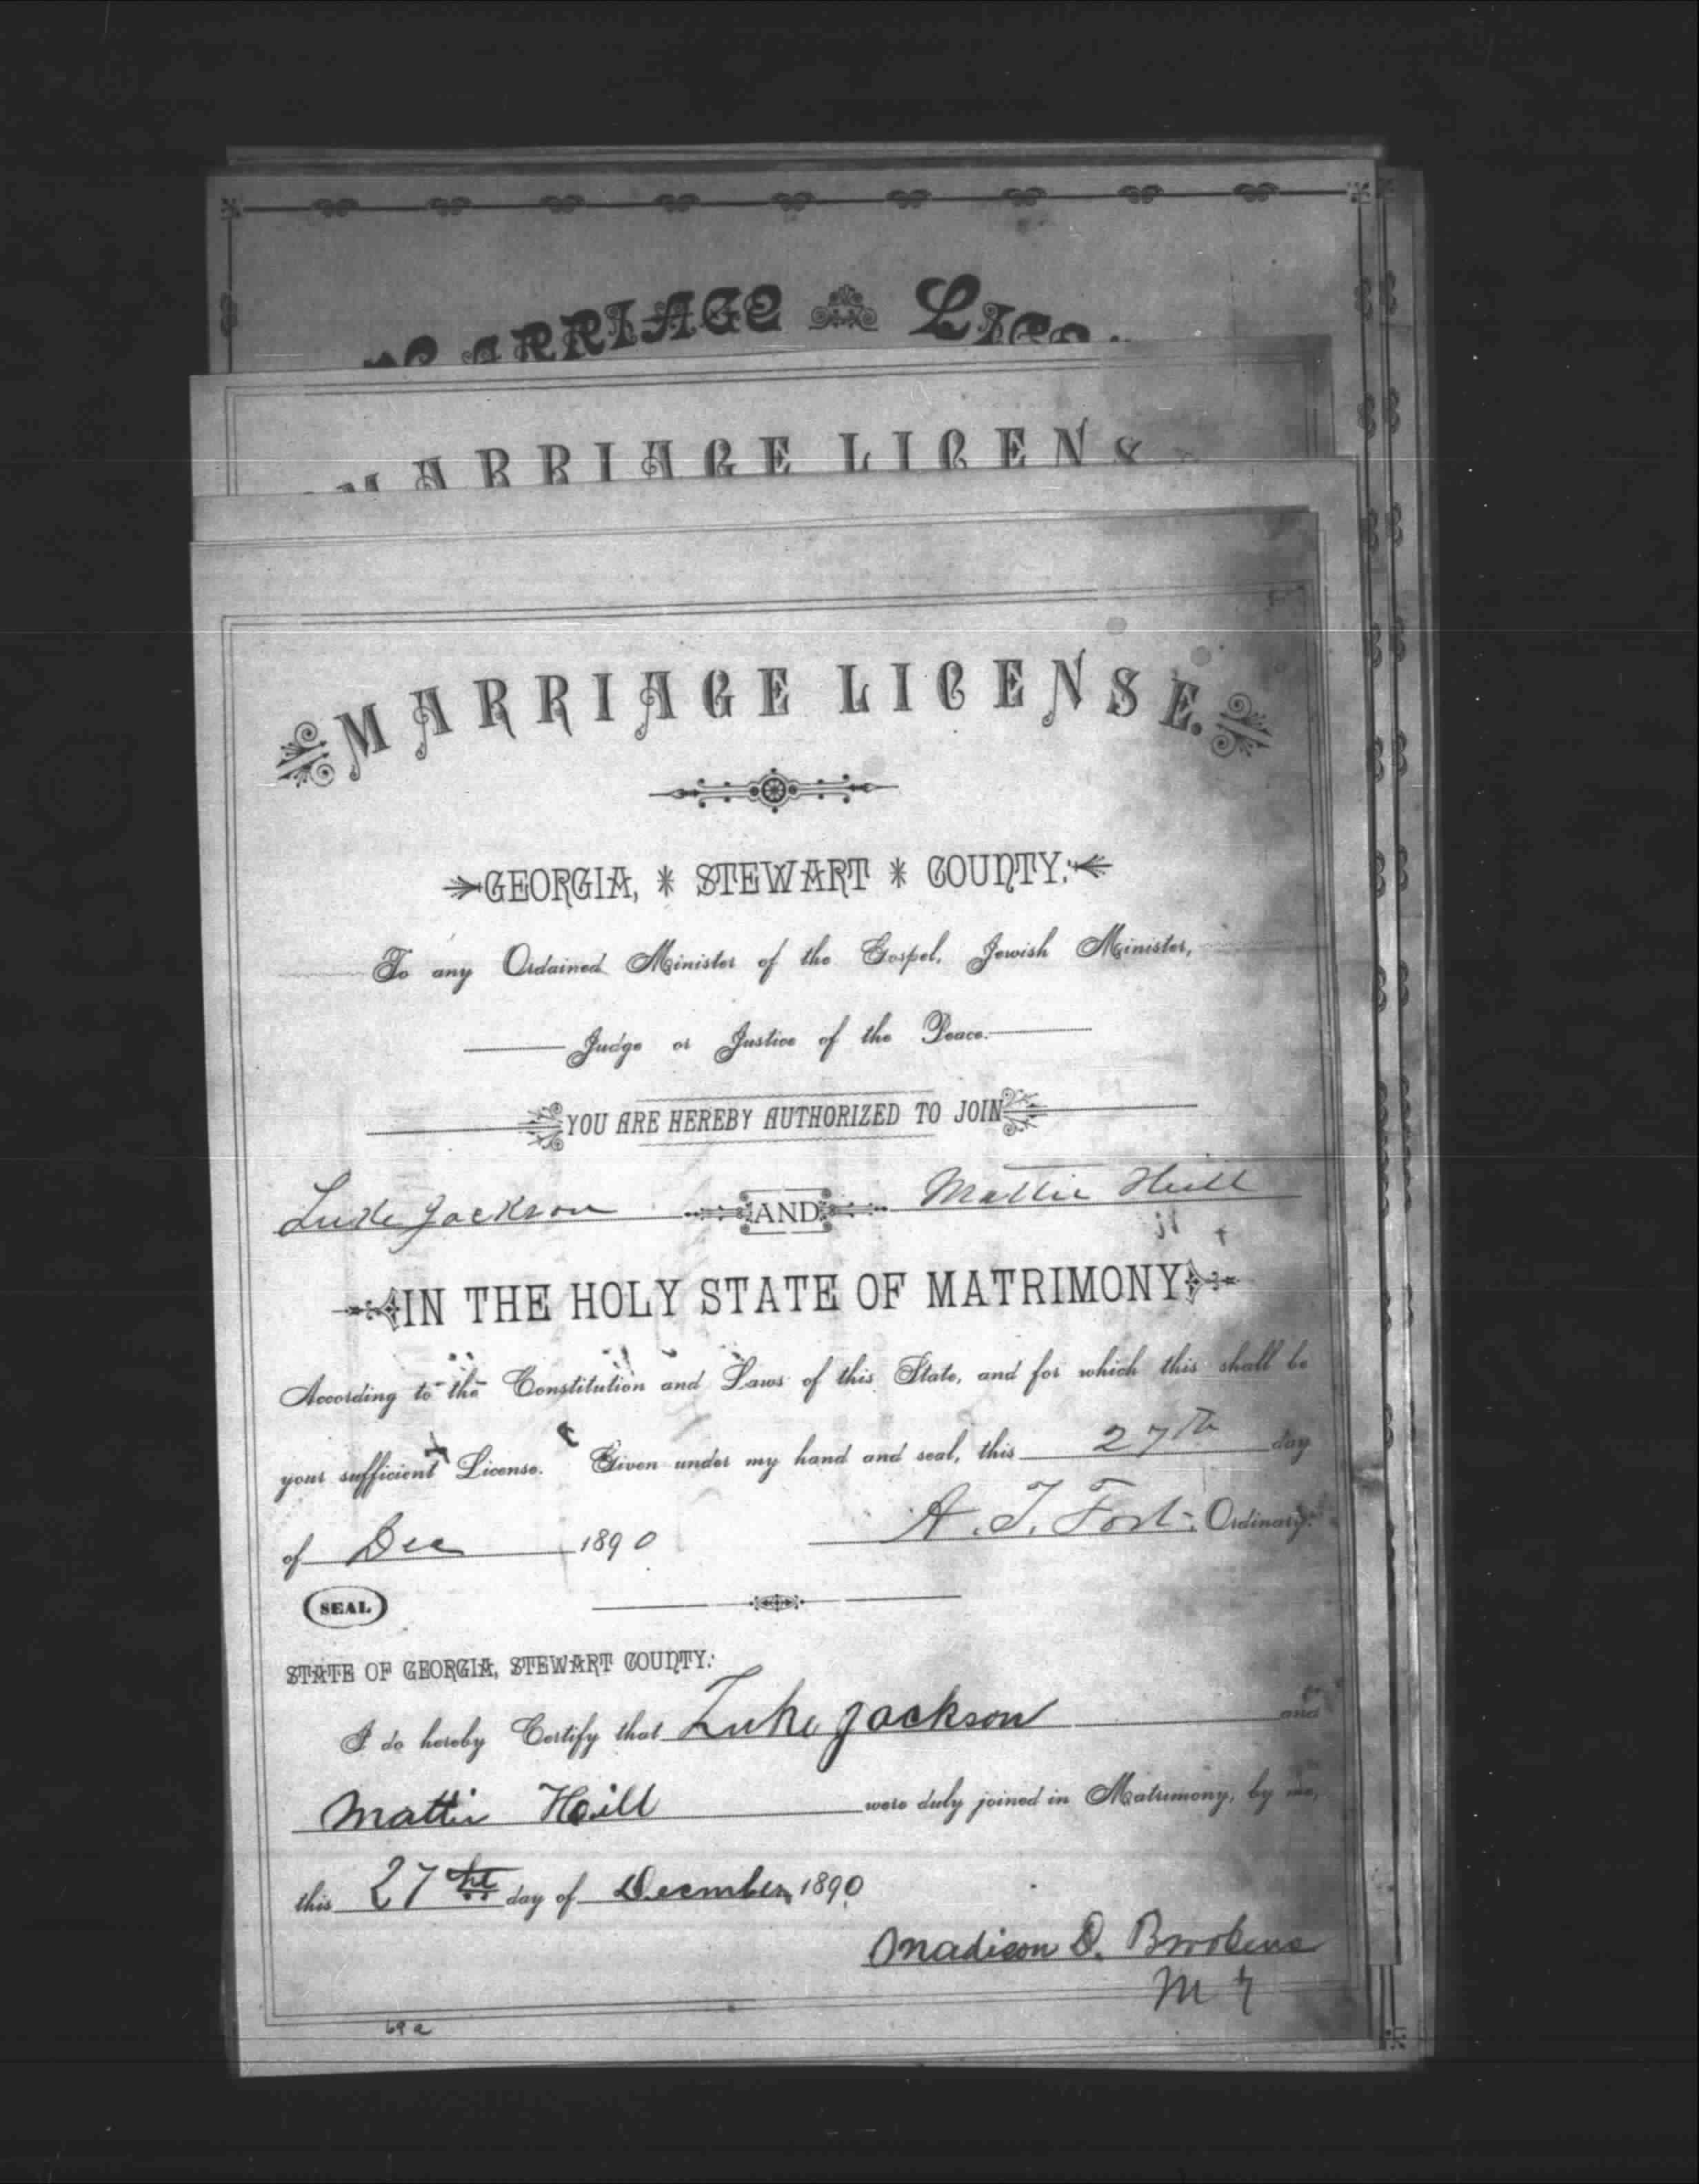 MARRIAGE LICE
MARRIAGE LICENS
MARRIAGE LICENSE.
GEORGIA, * STEWART * COUNTY:
To any Ordained Minister of the Gospel, Jewish Minister,
Judge or Justice of the Peace.
YOU ARE HEREBY AUTHORIZED TO JOIN
Luke Jackson AND Mattie Heill
IN THE HOLY STATE OF MATRIMONY
According to the Constitution and Laws of this State, and for which this shall be
your sufficient License. Given under my hand and seal, this 27th day
of Dec 1890 A. T. Fort. Ordinary.
SEAL
STATE OF GEORGIA, STEWART COUNTY:
I do hereby Certify that Luke Jackson and
Mattie Heill were duly joined in Matrimony, by me,
this 27th day of December 1890
Madison D.
M
69a